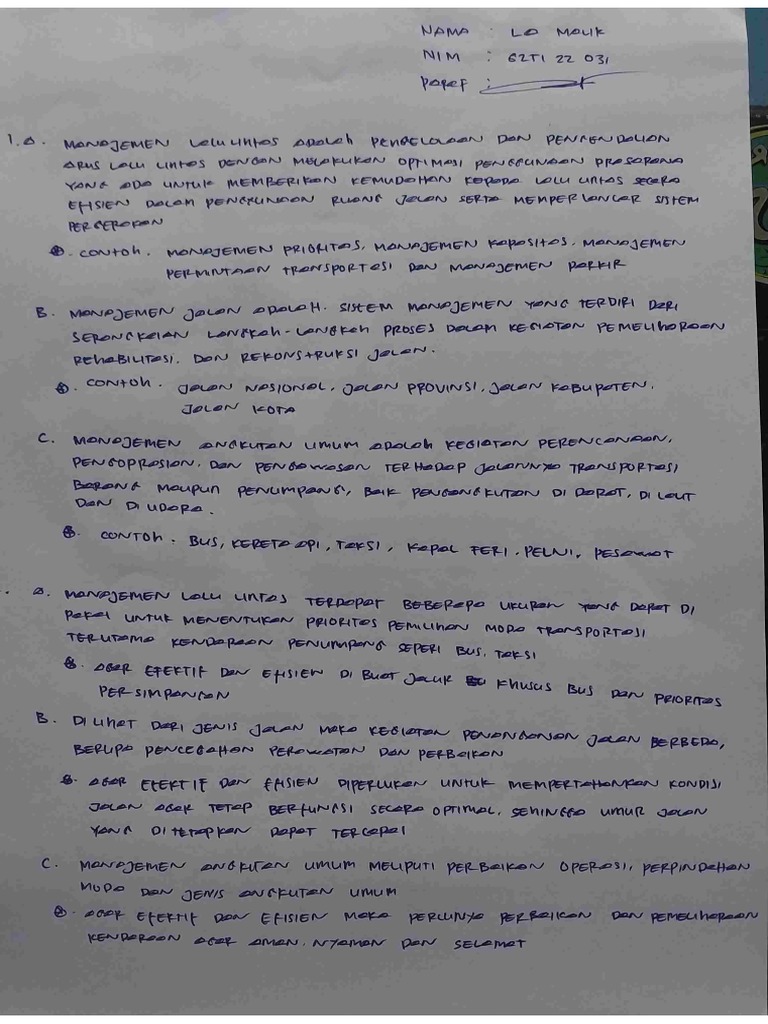 NAMA : LA MALIK
NIM : G2T1 22 031
Paraf :
1. A. MANAJEMEN LALU LINTAS ADALAH PENGELOLAAN DAN PENGENDALIAN
ARUS LALU LINTAS DENGAN MELAKUKAN OPTIMASI PENGGUNAAN PRASARANA
YANG ADA UNTUK MEMBERIKAN KEMUDAHAN KEPADA LALU LINTAS SECARA
EFISIEN DALAM PENGGUNAAN RUANG JALAN SERTA MEMPERLANCAR SISTEM
PERGERAKAN
CONTOH. MANAJEMEN PRIORITAS, MANAJEMEN KAPASITAS, MANAJEMEN
PERMINTAAN TRANSPORTASI DAN MANAJEMEN PARKIR
B. MANAJEMEN JALAN ADALAH. SISTEM MANAJEMEN YANG TERDIRI DARI
SERANGKAIAN LANGKAH-LANGKAH PROSES DALAM KEGIATAN PEMELIHARAAN
REHABILITASI. DAN REKONSTRUKSI JALAN.
CONTOH. JALAN NASIONAL, JALAN PROVINSI, JALAN KABUPATEN,
JALAN KOTA
C. MANAJEMEN ANGKUTAN UMUM ADALAH KEGIATAN PERENCANAAN,
PENGOPRASIAN, DAN PENGAWASAN TERHADAP JALANNYA TRANSPORTASI
BARANG MAUPUN PENUMPANG, BAIK PENGANGKUTAN DI DARAT, DI LAUT
DAN DI UDARA.
CONTOH. BUS, KERETA API, TAKSI, KAPAL FERI, PELNI, PESAWAT
A. MANAJEMEN LALU LINTAS TERDAPAT BEBERAPA UKURAN YANG DAPAT DI
PAKAI UNTUK MENENTUKAN PRIORITAS PEMILIHAN MODA TRANSPORTASI
TERUTAMA KENDARAAN PENUMPANG SEPERI BUS, TAKSI
AGAR EFEKTIF DAN EFISIEN DI BUAT JALUR KHUSUS BUS DAN PRIORITAS
PERSIMPANGAN
B. DI LIHAT DARI JENIS JALAN MAKA KEGIATAN PENANGANAN JALAN BERBEDA,
BERUPA PENCEGAHAN PERAWATAN DAN PERBAIKAN
AGAR EFEKTIF DAN EFISIEN DIPERLUKAN UNTUK MEMPERTAHANKAN KONDISI
JALAN AGAR TETAP BERFUNGSI SECARA OPTIMAL, SEHINGGA UMUR JALAN
YANG DI TETAPKAN DAPAT TERCAPAI
C. MANAJEMEN ANGKUTAN UMUM MELIPUTI PERBAIKAN OPERASI, PERPINDAHAN
MODA DAN JENIS ANGKUTAN UMUM
AGAR EFEKTIF DAN EFISIEN MAKA PERLUNYA PERBAIKAN DAN PEMELIHARAAN
KENDARAAN AGAR AMAN, NYAMAN DAN SELAMAT